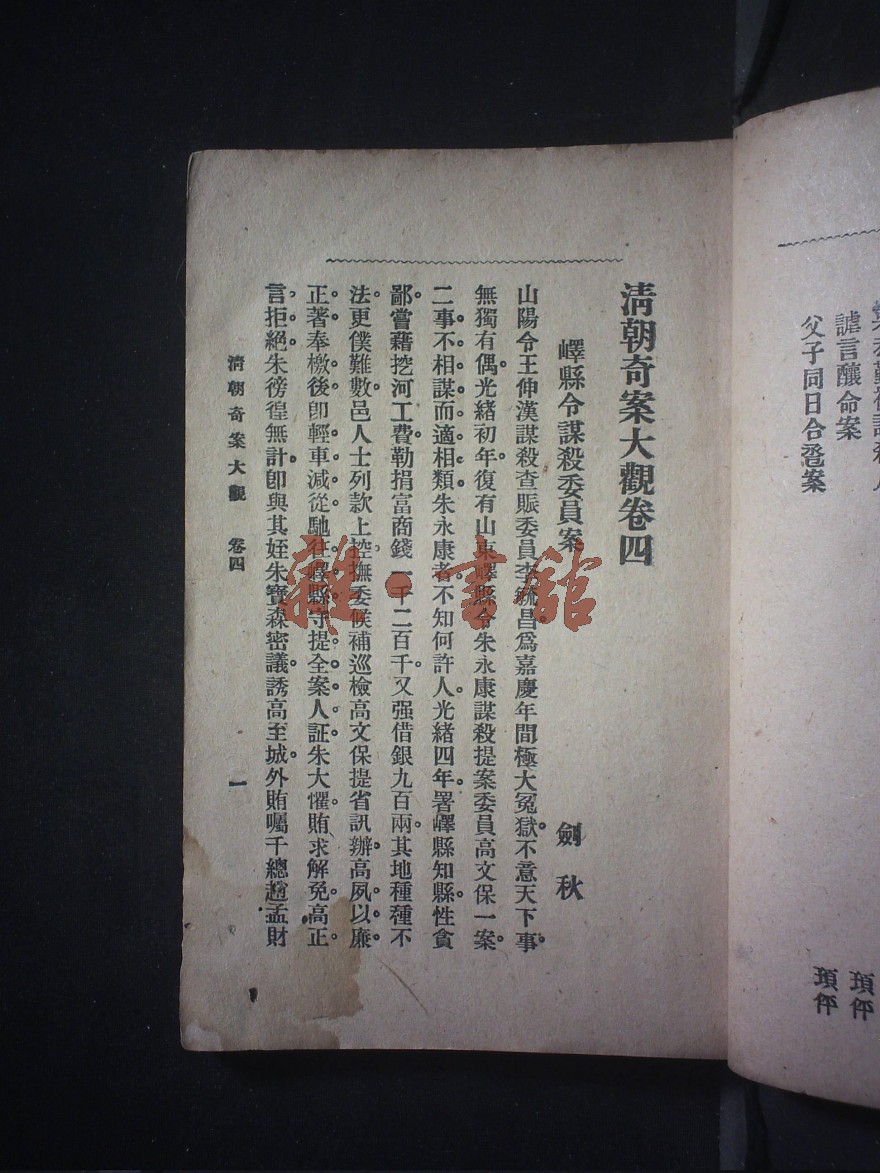 謔言釀命案
父子同日合卺案
頊伻
頊伻
清朝奇案大觀卷四
嶧縣令謀殺委員案
劍秋
山陽令王伸漢謀殺查賑委員李毓昌。爲嘉慶年間極大冤獄。不意天下事。
無獨有偶。光緒初年。復有山東嶧縣令朱永康謀殺提案委員高文保一案。
二事不相謀而適相類。朱永康者。不知何許人。光緒四年。署嶧縣知縣。性貪
鄙。嘗藉挖河工費。勒捐富商錢一千二百千。又强借銀九百兩。其地種種不
法。更僕難數。邑人士列款上控。撫委候補巡檢高文保提省訊辦。高夙以廉
正著。奉檄後。卽輕車減從。馳往嶧縣。守提全案人証。朱大懼。賄求解免。高正
言拒絕。朱徬徨無計。卽與其姪朱寶森密議。誘高至城外。賄囑千總趙孟財
清朝奇案大觀 卷四
一
雜·書館